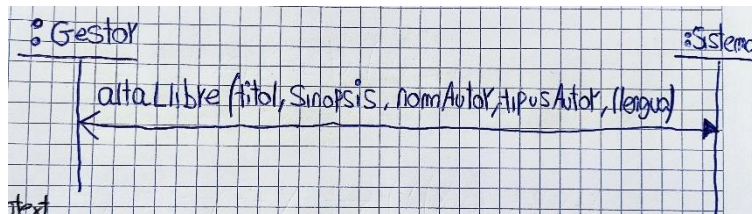 : Gestor
:Sistema
altaLlibre (titol, Sinopsis, nomAutor, tipusAutor, llengua)
text